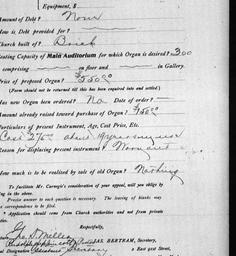 Equipment, $
Amount of Debt? None
How is Debt provided for?
Church built of? Brick
Seating Capacity of Main Auditorium for which Organ is desired? 300
comprising on floor and in Gallery.
Price of proposed Organ? $1550.00
(Form should not be returned till this has been required into and settled.)
Has new Organ been ordered? No Date of order?
Amount already raised toward purchase of Organ? $750.00
Particulars of present Instrument, Age, Cost Price, Etc.
Cost about years
Reason for displacing present instrument? Worn out
How much is to be realized by sale of old Organ? Nothing
To facilitate Mr. Carnegie's consideration of your appeal, will you oblige by
filling in the above.
Precise answer to each question is necessary. The leaving of blanks may
correspondence to be required.
Application should come from Church authorities and not from private
Respectfully,
JAS. BERTRAM, Secretary,
Secretary 2 East 91st Street,